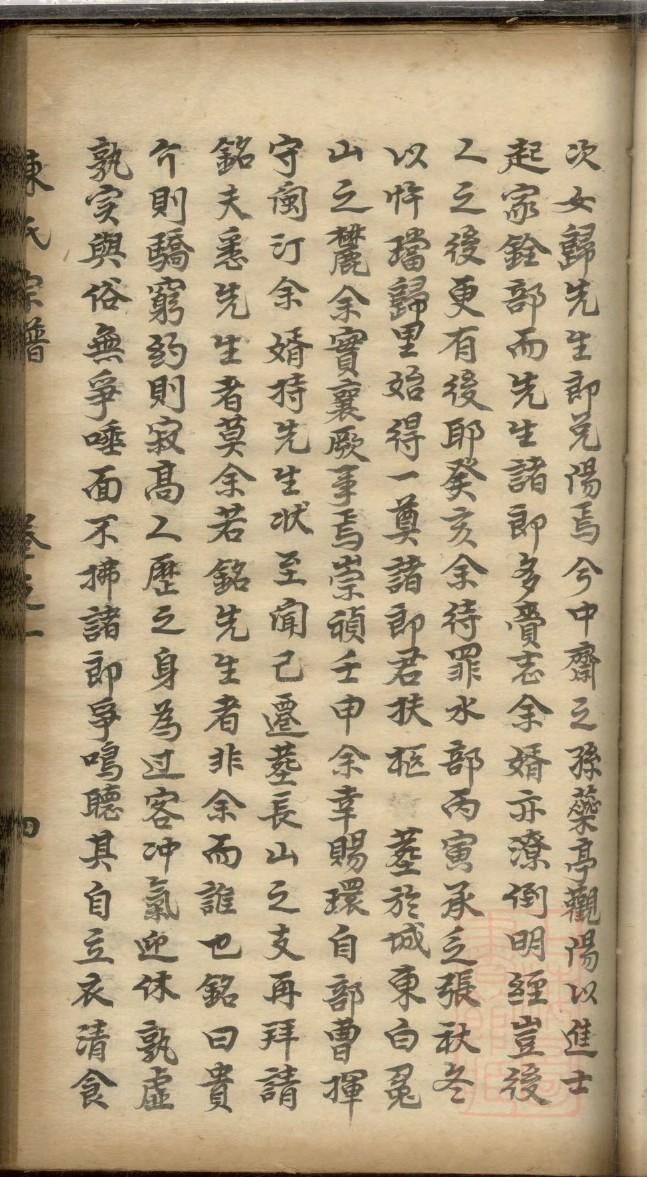 次女歸先生郎兌陽焉今中齋之孫蘂亭觀陽以進士
起家銓部而先生諸郎多賫志余婿亦潦倒明經豈後
人之後更有後耶癸亥余待罪水部丙寅承乏張秋冬
以忤璫歸里始得一奠諸郎君扶柩葬於城東白兔
山之麓余實襄厥事焉崇禎壬申余幸賜環自部曹揮
守閩汀余婿持先生状至聞已遷葬長山之支再拜請
銘夫悉先生者莫余若銘先生者非余而誰也銘曰貴
介則驕窮約則寂高人歷之身為过客冲氣迎休孰虛
孰实與俗無爭唾面不拂諸郎爭鳴聽其自立衣清食
陳氏宗譜 卷之一 四